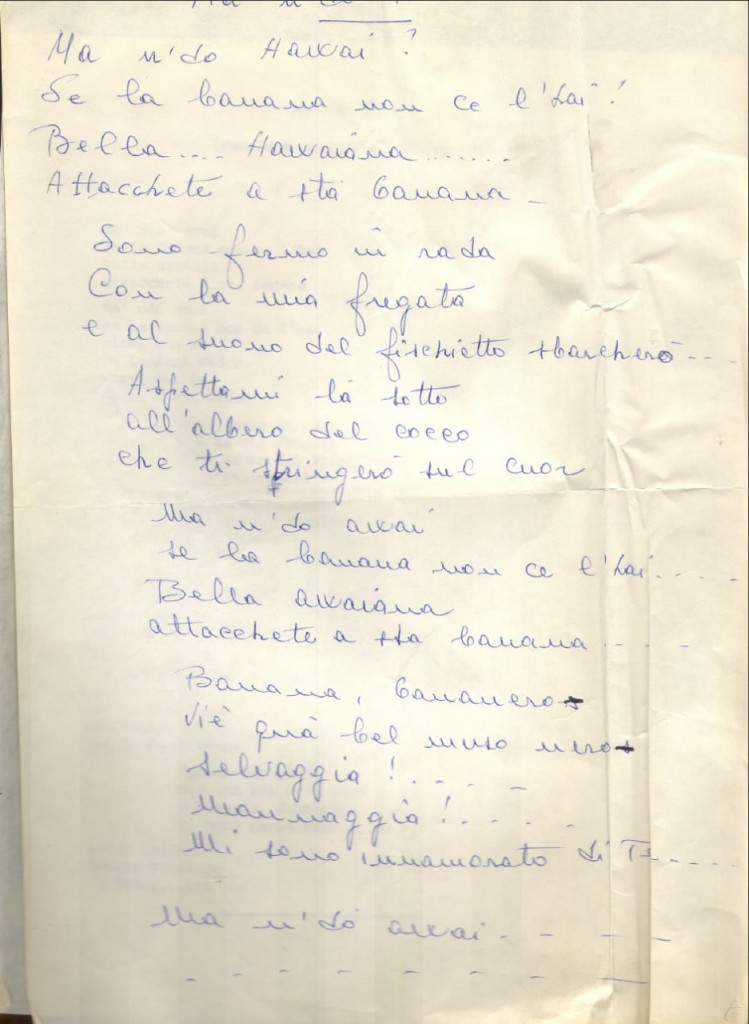 Ma n'do Hawai?
Se la banana non ce l'hai!
Bella.... Hawaiana.......
Attacchete a sta banana -
Sono fermo in rada
Con la mia fregata
e al suono del fischietto sbarcherò---
Aspettami là sotto
all'albero del cocco
che ti stringerò sul cuor
Ma n'do awai
se la banana non ce l'hai.----
Bella awaiana
attacchete a sta banana ----
Banana, bananero
Viè quà bel muso nero
selvaggia !.- - -
mannaggia !.- - -
Mi sono innamorato di Te.----
Ma n'dò awai - - - -
- - - - - - - -